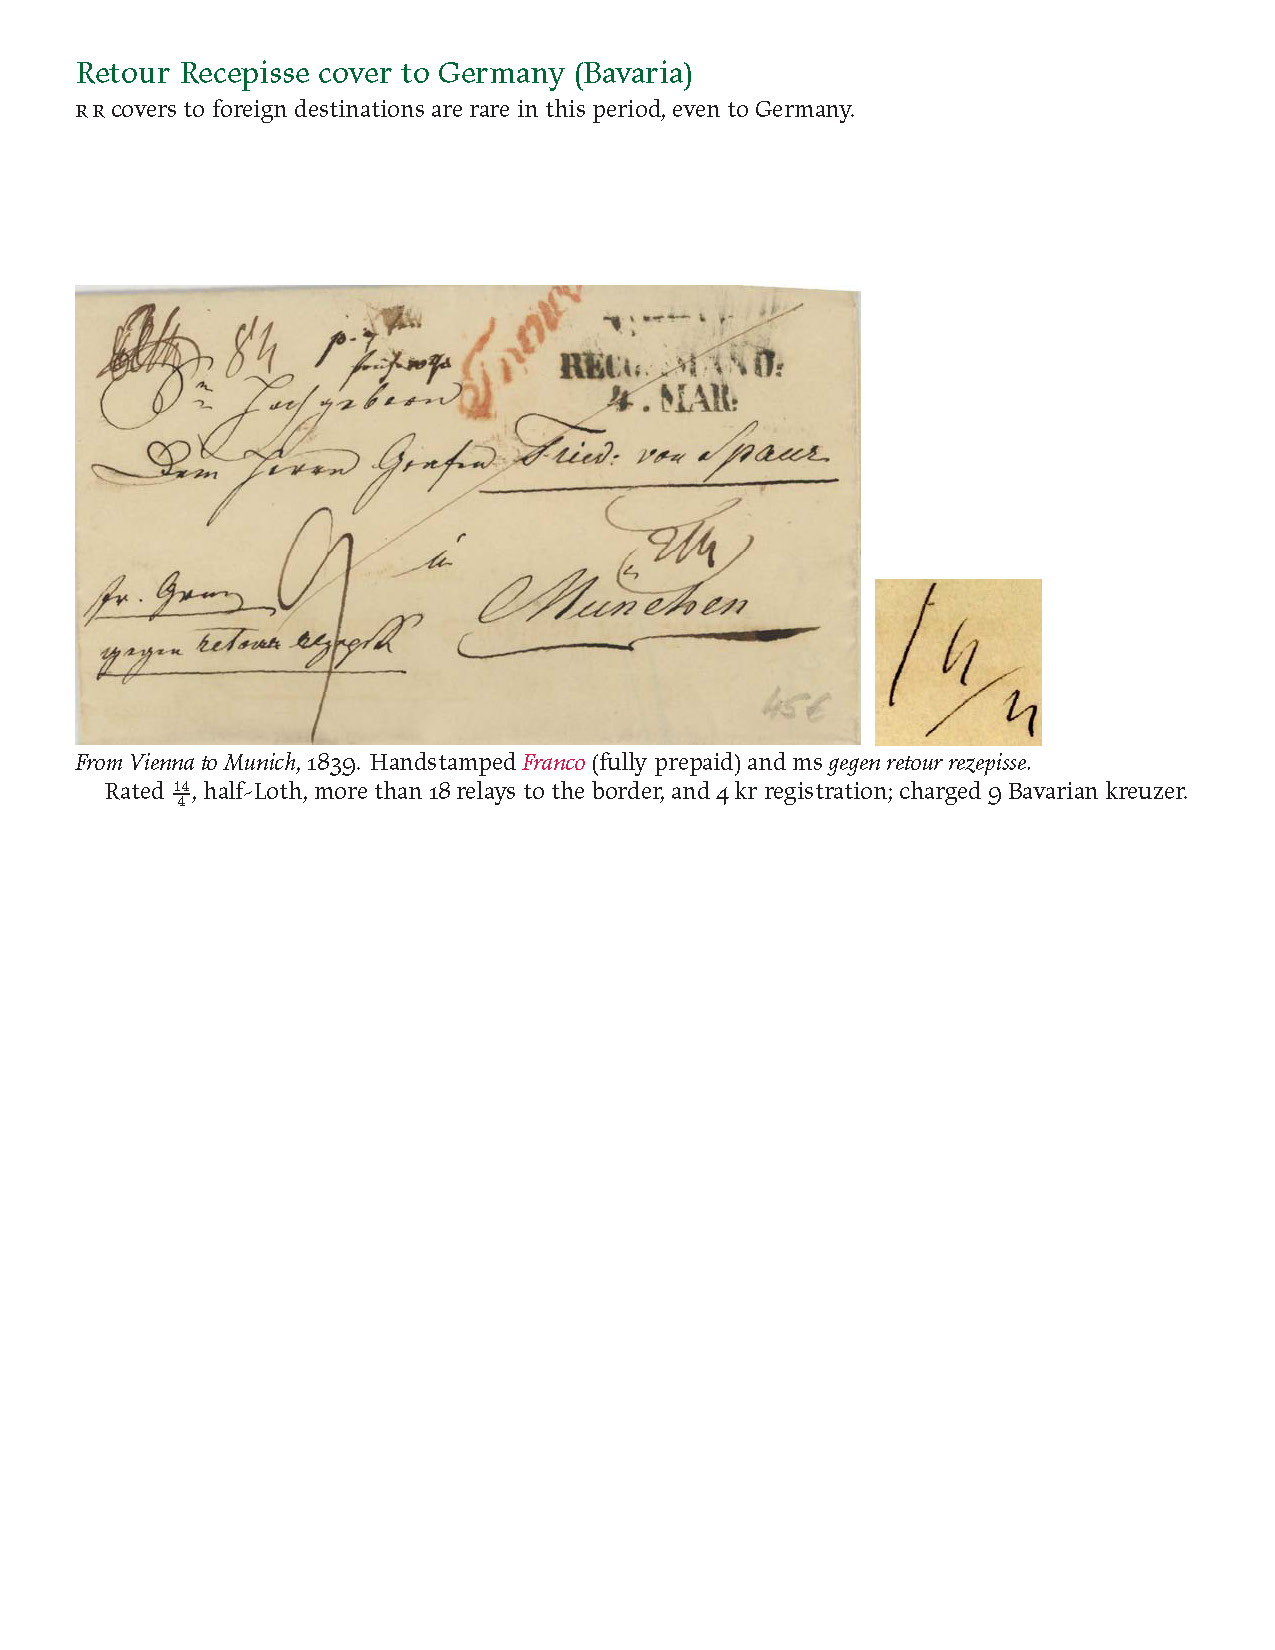 Retour Recepisse cover to Germany (Bavaria)
R R covers to foreign destinations are rare in this period, even to Germany.
84
RECOMMAND:
4. MAR:
Hochgeborn
Dem Herrn Grafen Fried: von Spaur
in
München
fr. Gränz
9
gegen retour rezepiß
45€
14/4
From Vienna to Munich, 1839. Handstamped Franco (fully prepaid) and ms gegen retour rezepisse.
Rated 14/4, half-Loth, more than 18 relays to the border, and 4 kr registration; charged 9 Bavarian kreuzer.